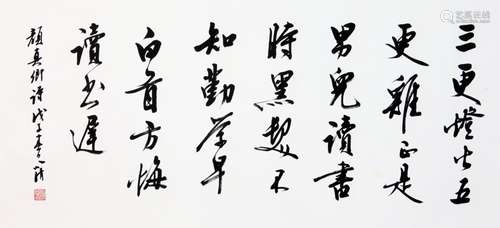 三更燈火五
更雞正是
男兒讀書
時黑髮不
知勤学早
白首方悔
讀书遲
顏真卿詩戊子